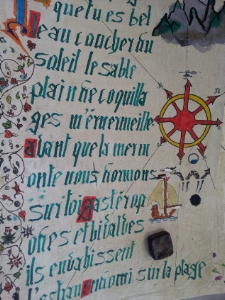 que tu es bel
eau coucher du
soleil le sable
plain de coquilla
ges m'émerveille
avant que la mer m
onte nous
sur toi gastérop
odes et bivalves
ils envahissent
sur la plage